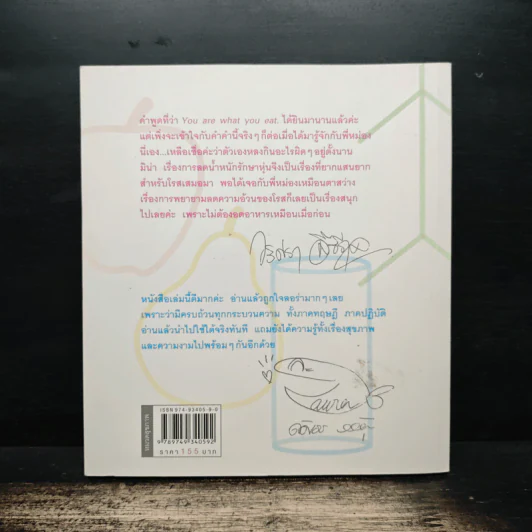 คำพูดที่ว่า You are what you eat. ได้ยินมานานแล้วค่ะ
แต่เพิ่งจะเข้าใจกับคำคำนี้จริงๆ ก็ต่อเมื่อได้มารู้จักกับพี่หม่อง
นี่เอง...เหลือเชื่อค่ะว่าตัวเองหลงกินอะไรผิดๆ อยู่ตั้งนาน
มิน่า เรื่องการลดน้ำหนักรักษาหุ่นจึงเป็นเรื่องที่ยากแสนยาก
สำหรับโรสเสมอมา พอได้เจอกับพี่หม่องเหมือนตาสว่าง
เรื่องการพยายามลดความอ้วนของโรสก็เลยเป็นเรื่องสนุก
ไปเลยค่ะ เพราะไม่ต้องอดอาหารเหมือนเมื่อก่อน
หนังสือเล่มนี้ดีมากค่ะ อ่านแล้วถูกใจลอร่ามากๆ เลย
เพราะว่ามีครบถ้วนทุกกระบวนความ ทั้งภาคทฤษฎี ภาคปฏิบัติ
อ่านแล้วนำไปใช้ได้จริงทันที แถมยังได้ความรู้ทั้งเรื่องสุขภาพ
และความงามไปพร้อมๆ กันอีกด้วย
ISBN 974-93405-9-6
9 789749 340592
ราคา 155 บาท